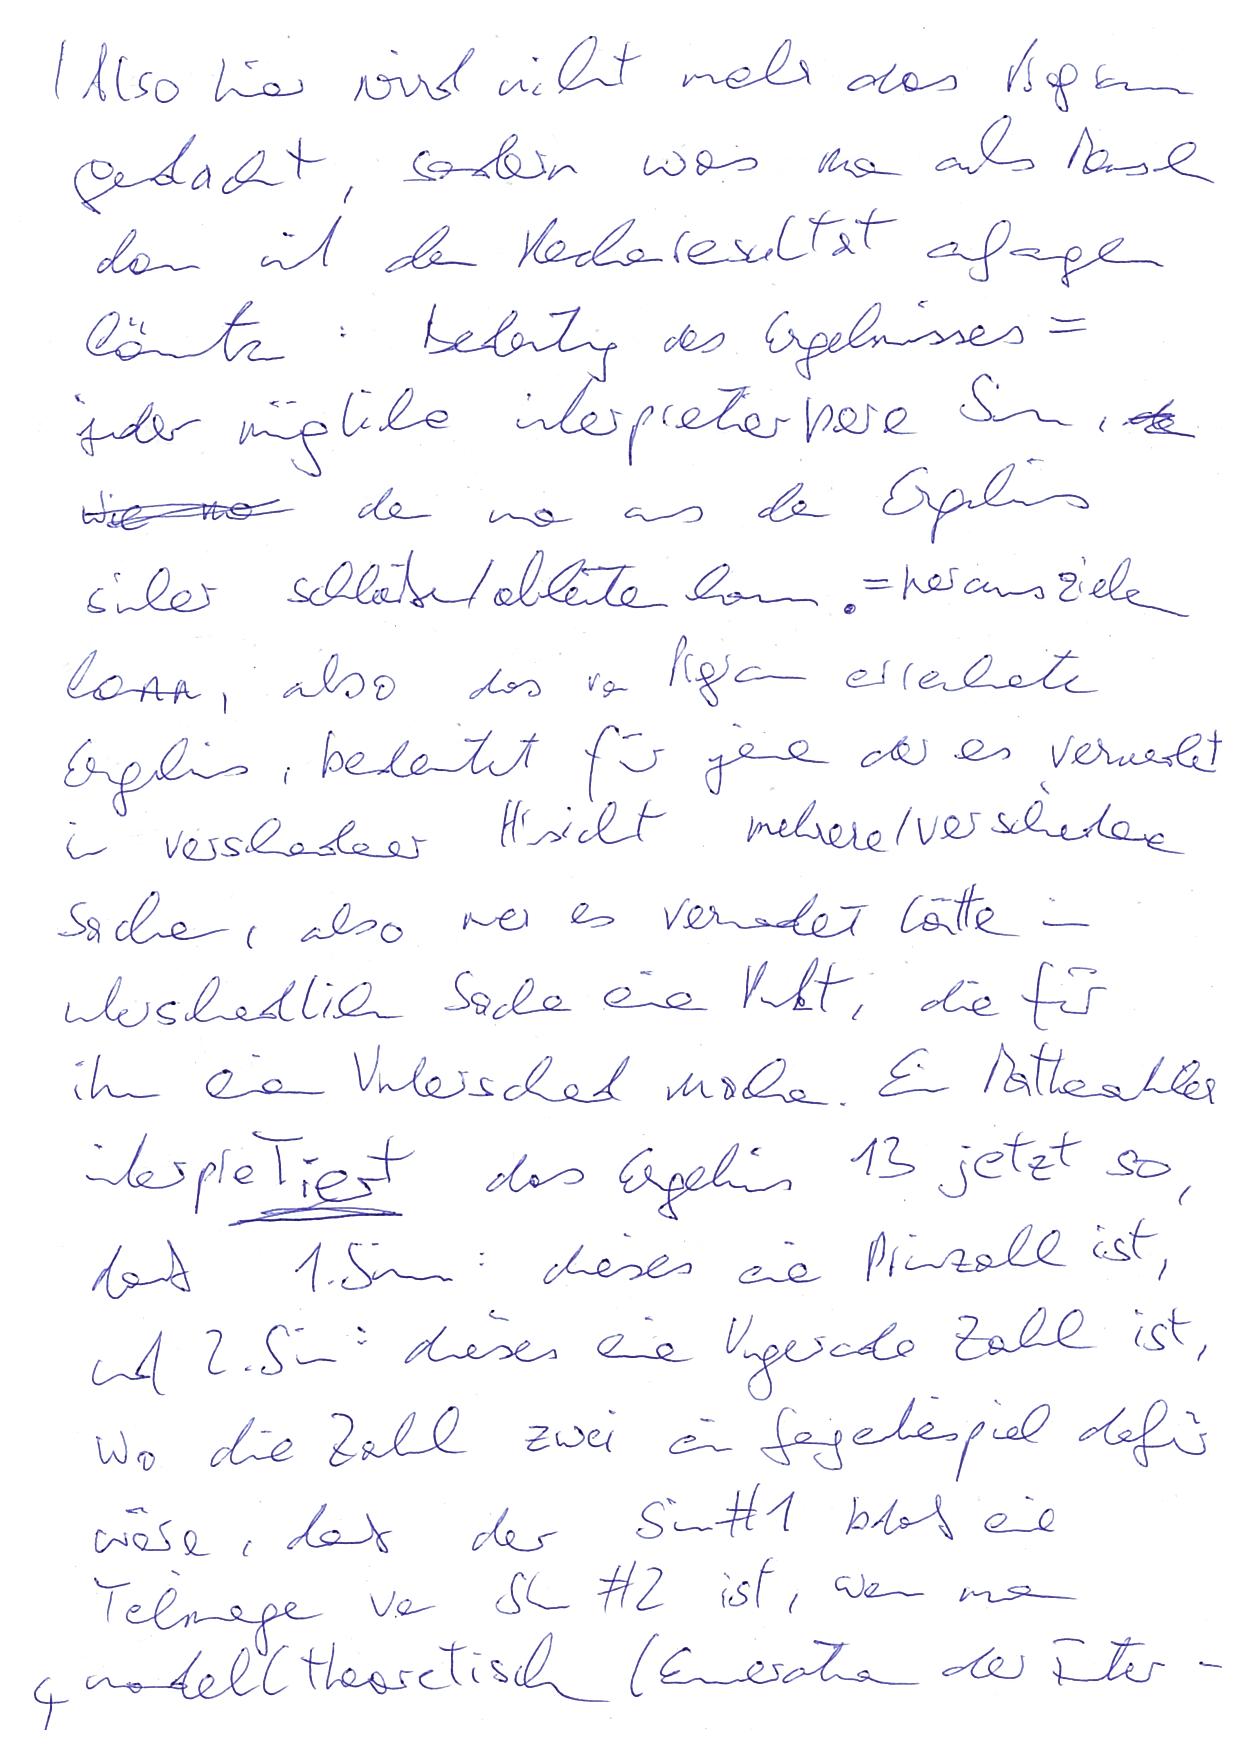 Also hier wird nicht mehr das Program
gedacht, sondern was man als Mensch
dann mit dem Rechenresultat anfangen
könnte: Bedeutung des Ergebnisses =
jeder mögliche interpretierbare Sinn, de
wie man den man aus dem Ergebnis
sicher schließen/ableiten kann. = herausziehen
kann, also das vom Program errechnete
Ergebnis, bedeutet für jenen der es verwendet
in verschiedener Hinsicht mehrere/verschiedene
Sachen, also wer es verwendet hätte in
unterschiedlichen Sachen eine, die für
ihn einen Unterschied machen. Ein Mathematiker
interpretiert das Ergebnis 13 jetzt so,
daß 1. Sinn: dieses eine Primzahl ist,
und 2. Sinn: dieses eine Ungerade Zahl ist,
wo die Zahl zwei ein Gegenbeispiel dafür
wäre, daß der Sinn #1 bloß eine
Teilmenge von Sinn #2 ist, wenn man
modelltheoretisch (Enumeration der Inter-